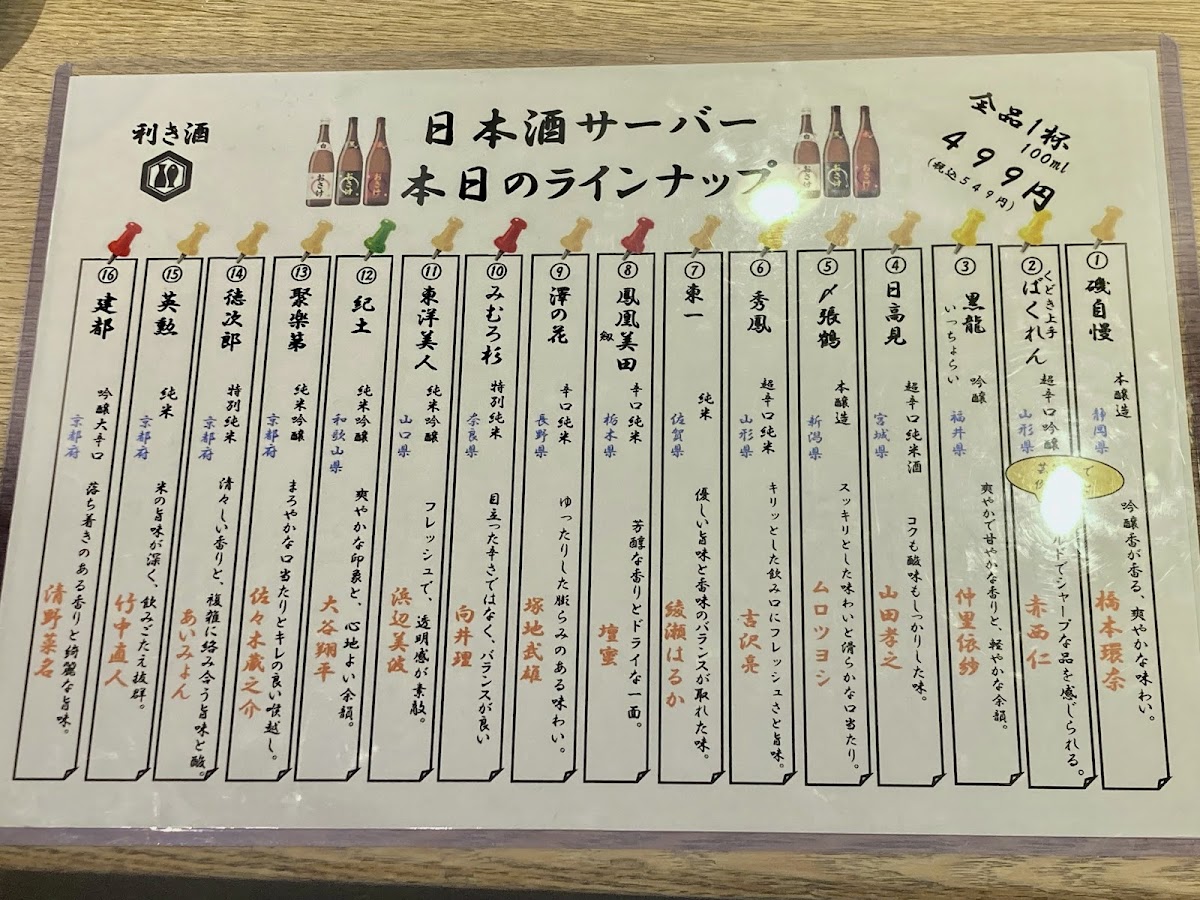 利き酒
日本酒サーバー
本日のラインナップ
全品1杯
100ml
499円
(税込549円)
①
磯自慢
本醸造
静岡県
吟醸香が香る、爽やかな味わい。
橋本環奈
②
くどき上手
ばくれん
超辛口吟醸
山形県
ルドでシャープな品を感じられる。
赤西仁
③
黒龍
いっちょらい
吟醸
福井県
爽やかで甘やかな香りと、軽やかな余韻。
仲里依紗
④
日高見
超辛口純米酒
宮城県
コクも酸味もしっかりした味。
山田孝之
⑤
〆張鶴
本醸造
新潟県
スッキリとした味わいと滑らかな口当たり。
ムロツヨシ
⑥
秀鳳
超辛口純米
山形県
キリッとした飲み口にフレッシュさと旨味。
吉沢亮
⑦
東一
純米
佐賀県
優しい旨味と香味のバランスが取れた味。
綾瀬はるか
⑧
鳳凰美田
剱
辛口純米
栃木県
芳醇な香りとドライな一面。
壇蜜
⑨
澤の花
辛口純米
長野県
ゆったりした膨らみのある味わい。
塚地武雄
⑩
みむろ杉
特別純米
奈良県
目立った辛さではなく、バランスが良い
向井理
⑪
東洋美人
純米吟醸
山口県
フレッシュで、透明感が素敵。
浜辺美波
⑫
紀土
純米吟醸
和歌山県
爽やかな印象と、心地よい余韻。
大谷翔平
⑬
聚楽第
純米吟醸
京都府
まろやかな口当たりとキレの良い喉越し。
佐々木蔵之介
⑭
徳次郎
特別純米
京都府
清々しい香りと、複雑に絡み合う旨味と酸。
あいみょん
⑮
英勲
純米
京都府
米の旨味が深く、飲みごたえ抜群。
竹中直人
⑯
建都
吟醸大辛口
京都府
落ち着きのある香りと綺麗な旨味。
清野菜名